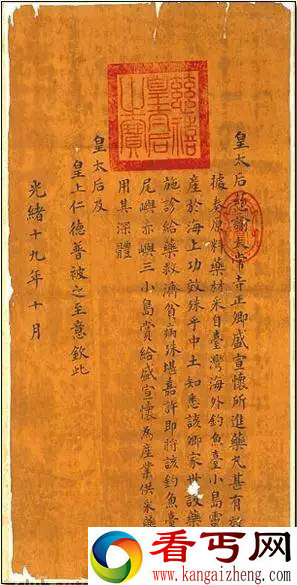 慈禧
皇太后
之寶
皇太后慈諭太常寺正卿盛宣懷所進藥丸甚有
據奏原料藥材采自臺灣海外釣魚臺小島靈
產於海上功效殊乎中土知悉該卿家世設藥
施診給藥救濟貧病殊堪嘉許即將該釣魚臺
尾嶼赤嶼三小島賞給盛宣懷為產業供采藥
用其深體
皇太后及
皇上仁德普被之至意欽此
光緒十九年十月
看丐网
www.kangaizheng.com